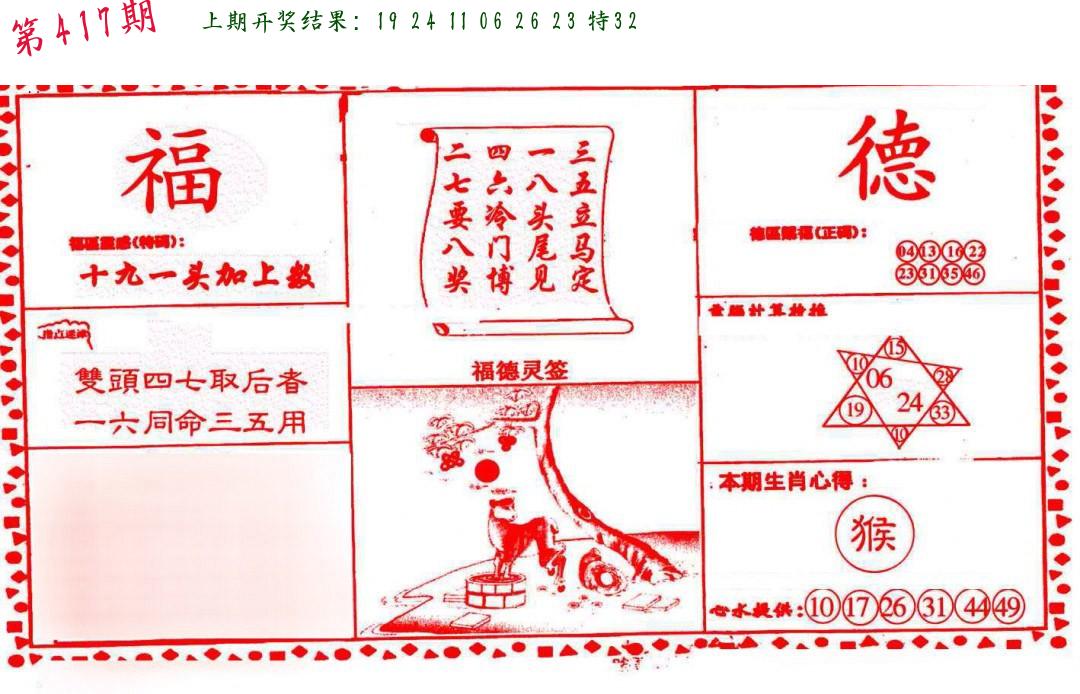 第417期
上期开奖结果：19 24 11 06 26 23 特32
福
福區靈感(特码)：
十九一头加上数
指点迷津
雙頭四七取后者
一六同命三五用
三五立马定
一八头尾见
四六冷门博
二七要八奖
福德灵签
德
德區賜福(正码)：
04 13 16 22
23 31 35 46
15
10 06 28
19 24 33
10
本期生肖心得：
猴
心水提供：10 17 26 31 44 49